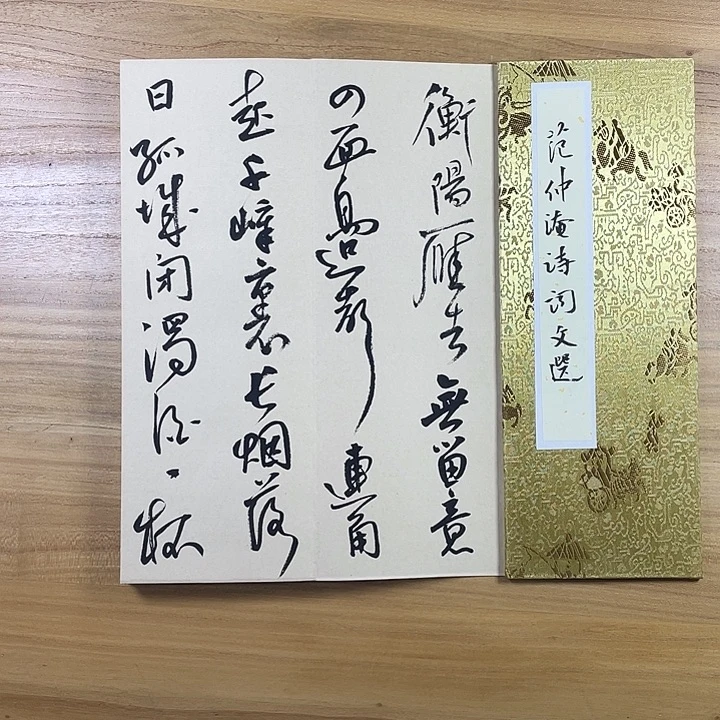 范仲淹诗词文選
衡陽雁去無留意
四面邊聲連角
起千嶂裏长烟落
日孤城闭濁酒一杯